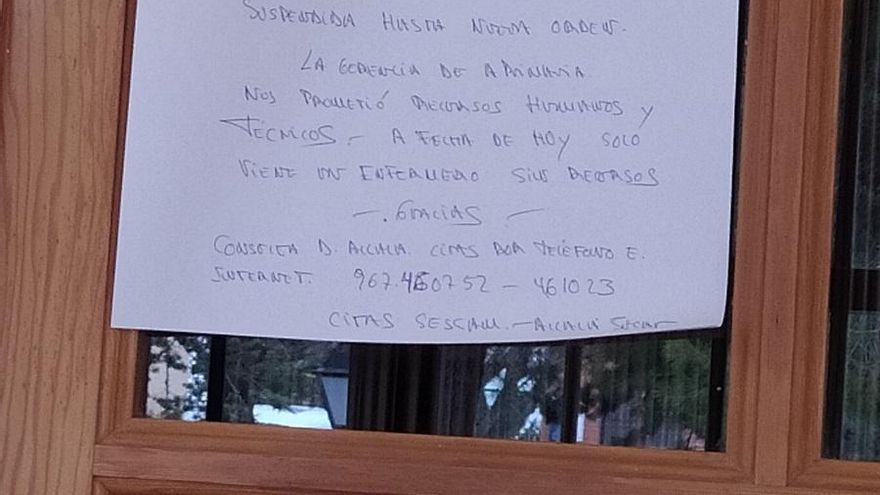 SUSPENDIDA HASTA NUEVA ORDEN.
LA GERENCIA DE
NOS PROMETIÓ RECURSOS HUMANOS Y
TÉCNICOS.- A FECHA DE HOY SOLO
VIENE UN ENFERMERO SIN RECURSOS
-. GRACIAS -
CONSULTA D. ALCALA. CITAS POR TELÉFONO E.
INTERNET. 967.460752 - 461023
CITAS SESCAM.- ALCALA